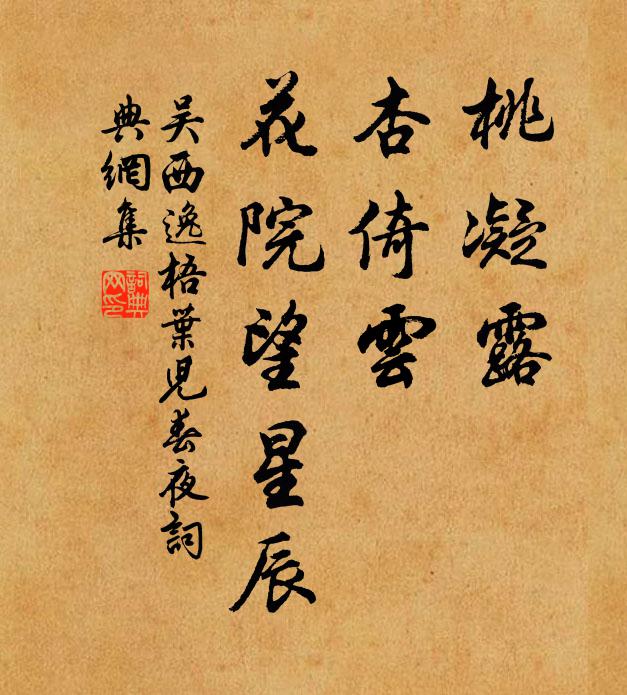 桃凝露
杏倚雲
花院望星辰
吴西逸梧葉兒春夜詞
典網集
詞典
网印